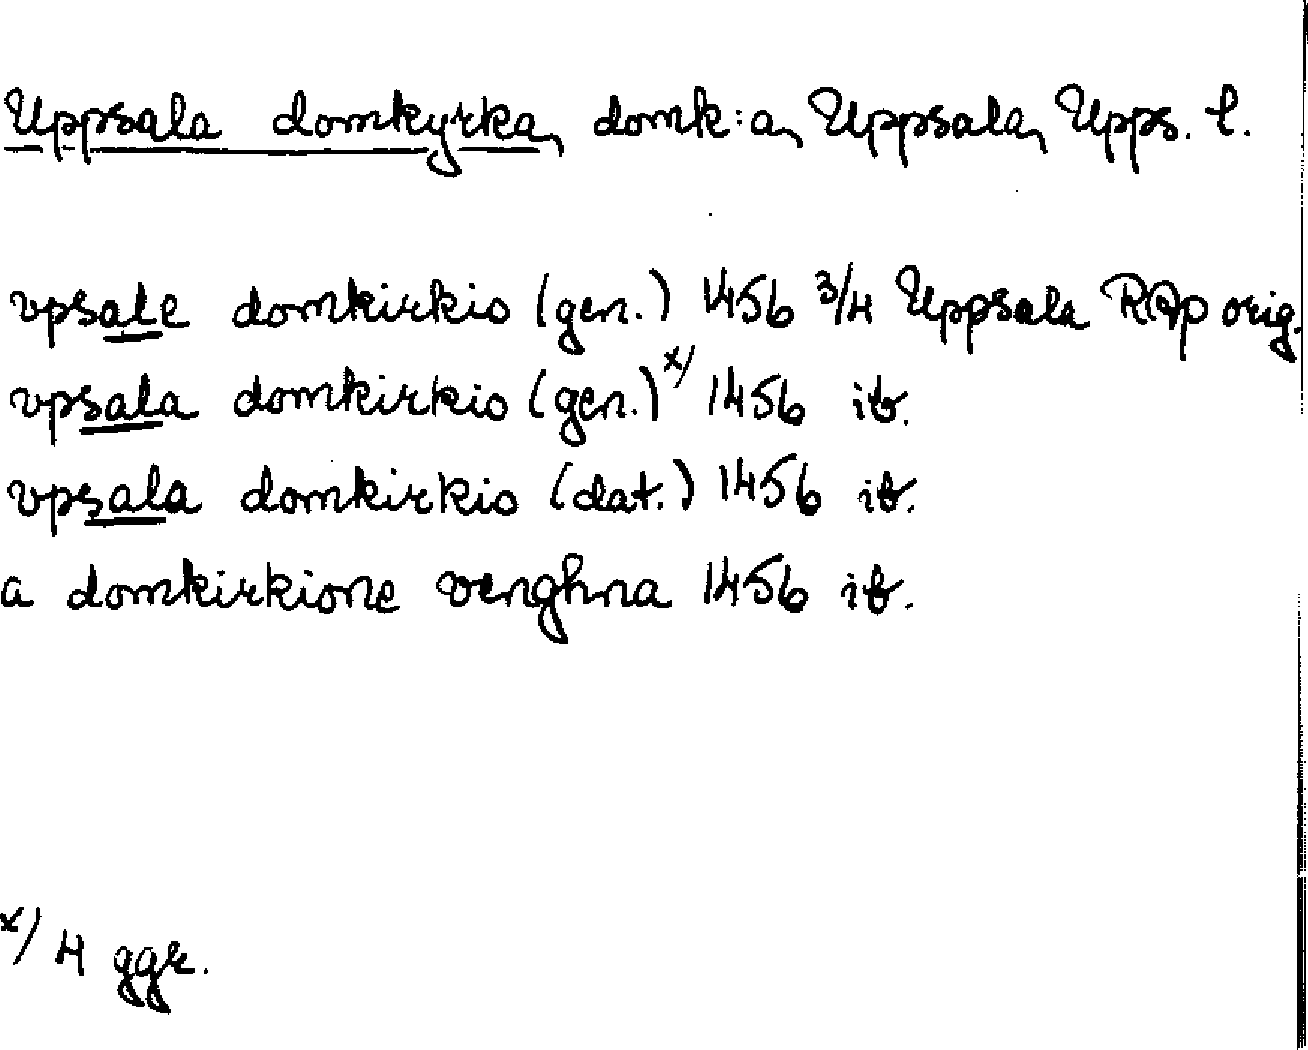 Uppsala domkyrka, domk:a, Uppsala, Upps. l.
vpsale domkirkio (gen.) 1456 3/4 Uppsala RAp orig.
vpsala domkirkio (gen.) x/ 1456 ib.
vpsala domkirkio (dat.) 1456 ib.
a domkirkione venghna 1456 ib.
x/ 4 ggr.